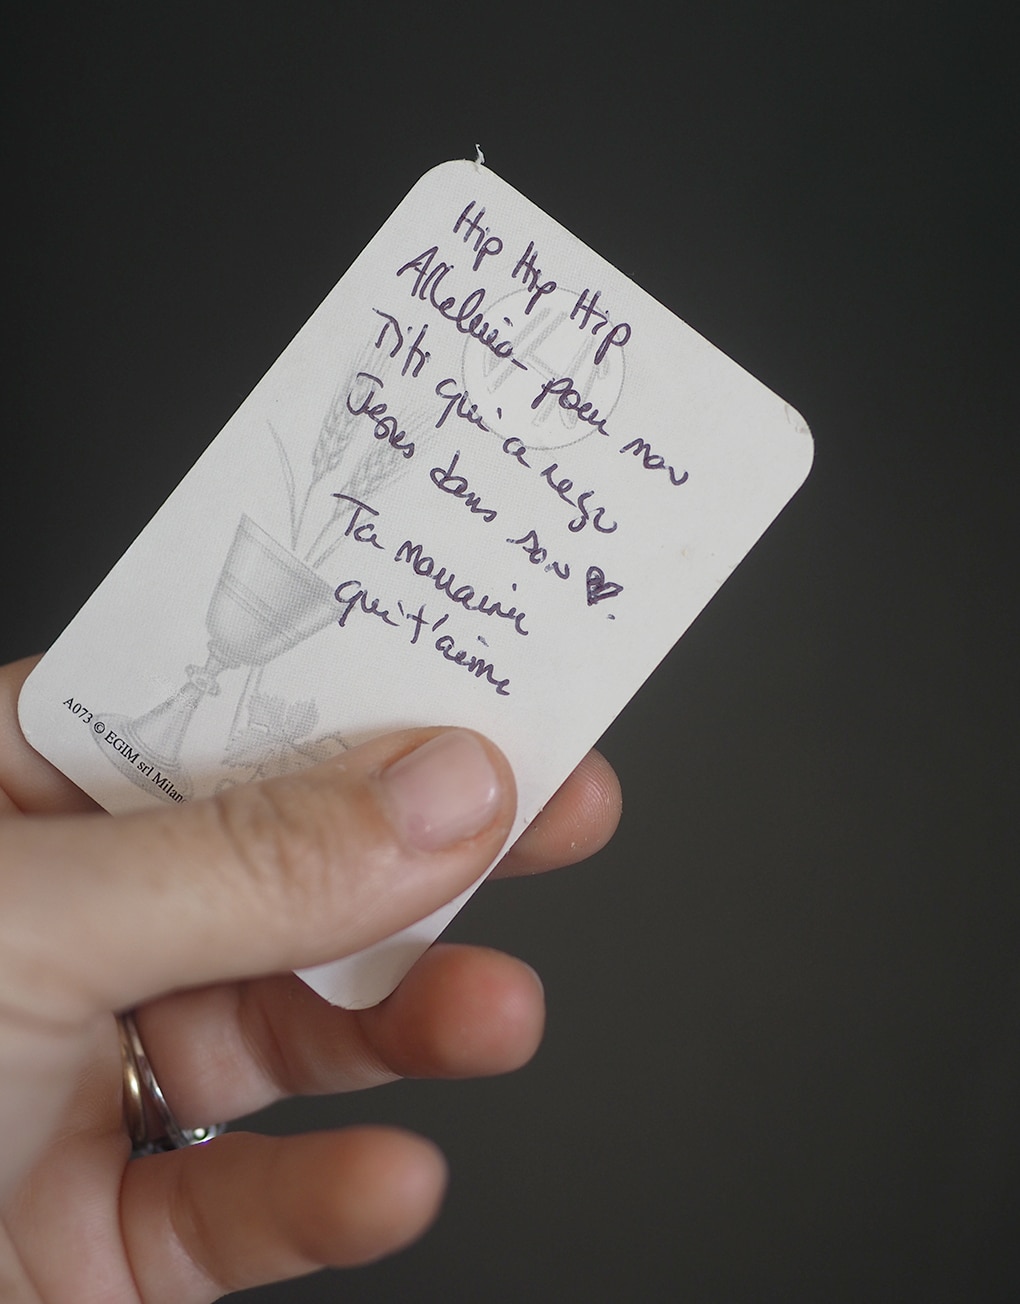 Hip Hip Hip
Alleluia pour mon
Titi qui a reçu
Jesus dans son ♥.
Ta marraine
qui t'aime
A073 © EGIM srl Milano